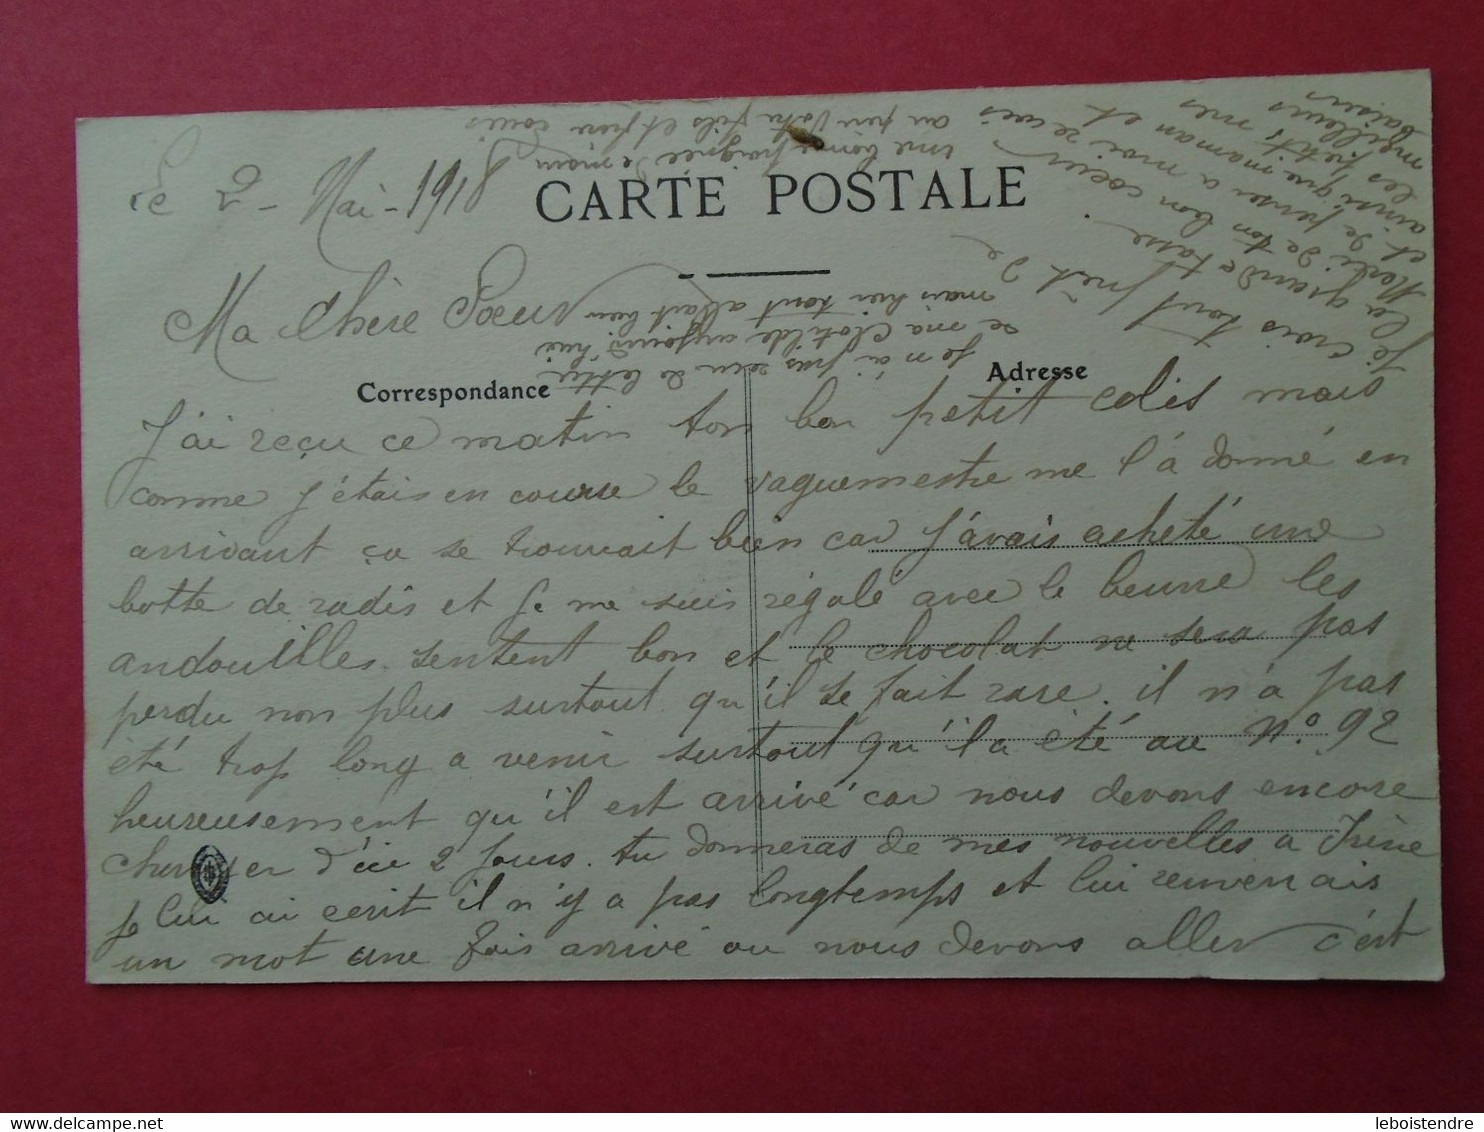 Le 2 - Mai - 1918
CARTE POSTALE
Ma Chère Soeur
Correspondance
Adresse
J'ai reçu ce matin ton bon petit colis mais
comme j'étais en course le vaguemestre me l'a donné en
arrivant ça se trouvait bien car j'avais acheté une
botte de radis et je me suis régalé avec le beurre les
andouilles sentent bon et le chocolat ne sera pas
perdu non plus surtout qu'il se fait rare. il n'a pas
été trop long a venir surtout qu'il a été au N° 92
heureusement qu'il est arrivé car nous devons encore
changer d'ici 2 jours. tu donneras de mes nouvelles a Irène
je lui ai écrit il n'y a pas longtemps et lui renverrais
un mot une fois arrivé ou nous devons aller c'est
Je crois tout près de
la grande tasse.
Merci de ton bon coeur
et de penser a moi
ainsi que maman et
les petits mes
meilleurs
baisers
une bonne poignée de main
Je n'ai pas reçu de lettre
de ma Clotilde aujourd'hui
mais hier tout allait bien
leboistendre